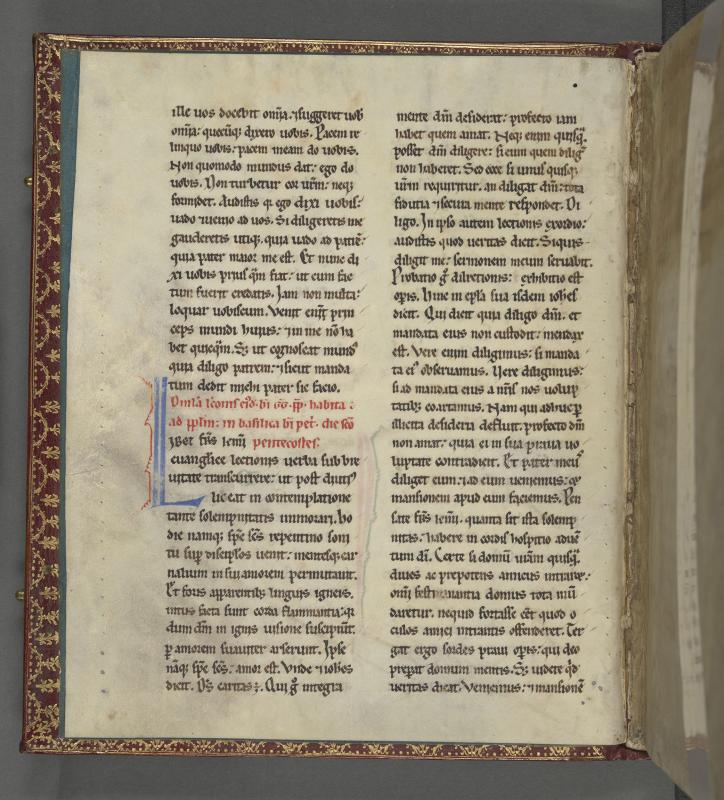 ille uos docebit om̄ia. ⁊ suggeret uob
om̄ia: quecūq; dixero uobis. Pacem re
linquo uobis: pacem meam do uobis.
Non quomodo mundus dat: ego do
uobis. Non turbetur cor ur̄m: neq;
formidet. Audistis q̄ ego dixi uobis:
uado ⁊ uenio ad uos. Si diligeretis me
gauderetis utiq; quia uado ad patrē:
quia pater maior me est. Et nunc di
xi uobis prius q̄m fiat: ut cum fac
tum fuerit credatis. Iam non multa:
loquar uobiscum. Venit enī prin
ceps mundi huius: ⁊ in me nō ha
bet quicq̄m. S; ut cognoscat mund᷒
quia diligo patrem: ⁊ sicut manda
tum dedit michi pater sic facio.
Omla lectonis eiusdē. bī GG. pp. habita:
ad pplm̄: in basilica bī pet̄. die scō
IBet frs̄ krmi pentecostes.
euanglice lectionis uerba sub bre
uitate transcurrere: ut post diuti᷒
liceat in contemplatione
tante solempnitatis immorari. ho
die namq; sp̄c scs̄ repentino soni
tu sup̄ discip̄los uenit: mentesq; car
nalium in sui amorem permutauit.
Et foris apparentib; linguis igneis.
intus facta sunt corda flammantia: q
dum dm̄ in ignis uisione suscipiūt.
p amorem suauiter arserunt. Ipse
nāq; sp̄c scs̄: amor est. Vnde ⁊ iohēs
dicit. Ds̄ caritas ē. Qui g̊ integra
mente dm̄ desiderat: profecto iam
habet quem amat. Neq; enim quisq̄
posset dm̄ diligere: si eum quem dilig̃
non haberet. Sed ecce si unus quisq;
ur̄m requiritur. an diligat dm̄: tota
fiducia ⁊ secura mente respondet. Di
ligo. In ipso autem lectionis exordio:
audistis quod ueritas dicit. Siquis
diligit me: sermonem meum seruabit.
Probatio g̊ dilectionis: exhibitio est
op̄is. Hinc in ep̄la sua isdem iohēs
dicit. Qui dicit quia diligo dm̄. et
mandata eius non custodit: mendax
est. Vere enim diligimus: si manda
ta ei᷒ obseruamus. Vere diligimus:
si ad mandata eius a nr̄is nos uolup
tatib; coartamus. Nam qui adhuc p
illicita desideria defluit. profecto dm̄
non amat: quia ei in sua praua uo
luptate contradicit. Et pater meus
diliget eum: ⁊ ad eum ueniemus: &
mansionem apud eum faciemus. Pen
sate frs̄ krmi. quanta sit ista solemp
nitas: habere in cordis hospitio aduē
tum dī. Certe si domū ur̄am quisq̄
diues ac prepotens amicus intraret:
omī festinantia domus tota mū
daretur. nequid fortasse eēt quod o
culos amici intrantis offenderet. Ter
gat ergo sordes praui op̄is: qui deo
preparat domum mentis. S; uidete q̊d
ueritas dicat. Veniemus: ⁊ mansionē